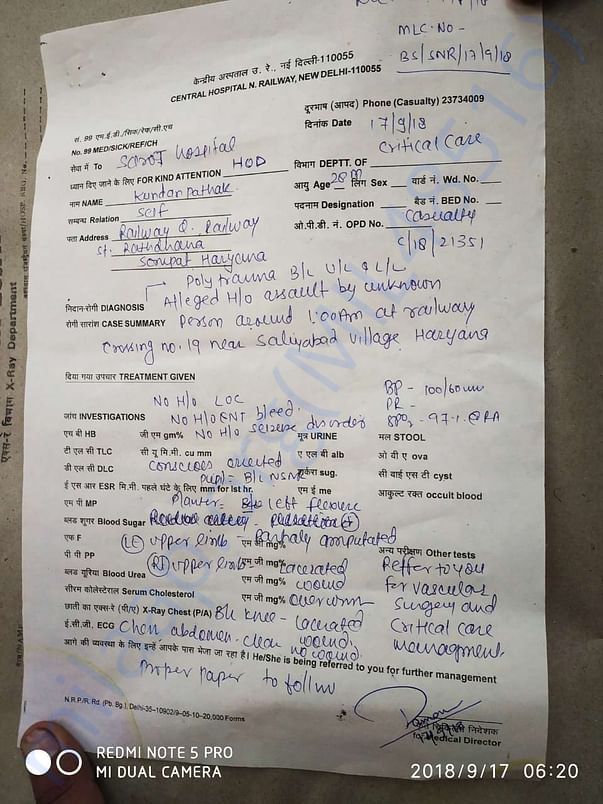 MLC.NO -
BS/SNR/17/9/18
केन्द्रीय अस्पताल उ. रे., नई दिल्ली-110055
CENTRAL HOSPITAL N. RAILWAY, NEW DELHI-110055
दूरभाष (आपद) Phone (Casualty) 23734009
सं. 99 एम.ई.डी./सिक/रेफ/सी.एच
No. 99 MED/SICK/REF/CH
दिनांक Date 17/9/18
सेवा में To Saroj Hospital
Critical Care
ध्यान दिए जाने के लिए FOR KIND ATTENTION HOD
विभाग DEPTT. OF
नाम NAME Kundan Pathak
आयु Age 28 M लिंग Sex वार्ड नं. Wd. No.
सम्बन्ध Relation Self
पदनाम Designation बैड नं. BED No.
पता Address Railway Q. Railway
ओ.पी.डी. नं. OPD No. Casualty
St. Rathdhana
C/18/21351
Sonipat Haryana
Poly trauma B/L U/L & L/L
निदान-रोगी DIAGNOSIS Alleged H/o assault by unknown
रोगी सारांश CASE SUMMARY Person around 1:00Am at railway
crossing no. 19 near Saliyabad village Haryana
दिया गया उपचार TREATMENT GIVEN
BP - 100/60
PR -
NO H/o LOC
जांच INVESTIGATIONS NO H/o ENT bleed.
SPO2 - 97% @ RA
एच बी HB जी एम gm% NO H/o seizure disorder
मूत्र URINE मल STOOL
टी एल सी TLC सी यू मि.मी. cu mm
ए एल बी alb ओ वी ए ova
डी एल सी DLC conscious oriented
शुर्करा sug. सी वाई एस टी cyst
pupil - B/L NSNR
ई एस आर ESR मि.मी. पहले घंटे के लिए mm for Ist hr.
एम ई me आकुल्ट रक्त occult blood
एम पी MP Planter - B/L left flexure
ब्लड शुगर Blood Sugar
एम जी mg%
एफ F (Lt) upper limb - Partialy amputated
अन्य परीक्षण Other tests
पी पी PP एम जी mg%
(Rt) upper limb Lacerated
Reffer to you
ब्लड यूरिया Blood Urea एम जी mg% wound
for vascular
सीरम कोलेस्टेराल Serum Cholesterol एम जी mg%
surgery and
छाती का एक्स-रे (पी/ए) X-Ray Chest (P/A) B/L knee - lacerated wound
Critical care
ई.सी.जी. ECG Chest abdomen - clear no wound
managment
आगे की व्यवस्था के लिए इन्हें आपके पास भेजा जा रहा है। He/She is being referred to you for further management
Proper paper to follow
N.R.P/R. Rd. (Pb. Bg.), Delhi-35-10902/9-05-10-20,000 Forms
for Medical Director
एक्स-रे विभाग X-Ray Department
REDMI NOTE 5 PRO
MI DUAL CAMERA
2018/9/17 06:20